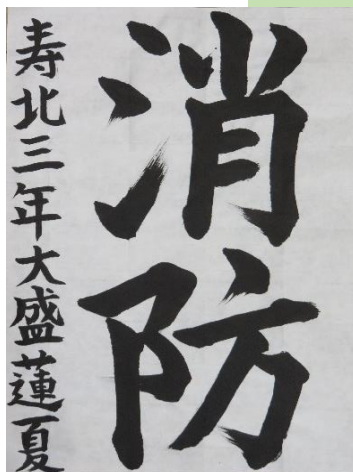 消防
寿北三年大盛蓮夏